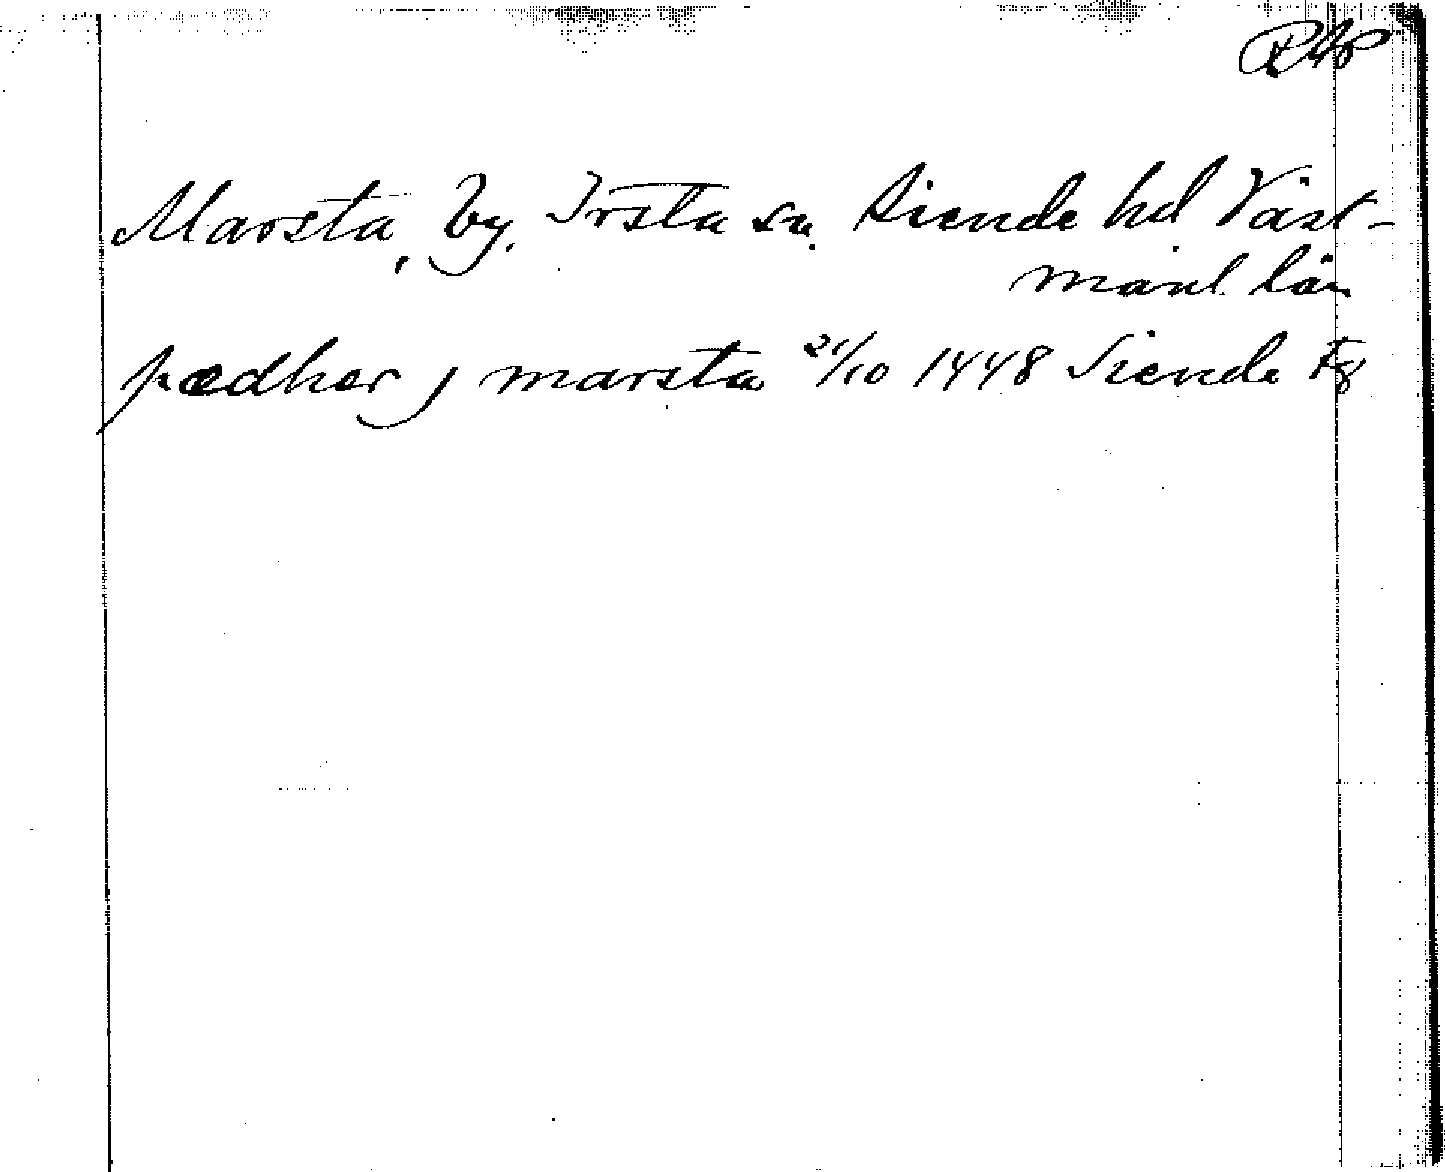 RAp
Marsta, by, Irsta sn. Siende hd Väst-
manl. län
pædher j marsta 21/10 1448 Siende Fg